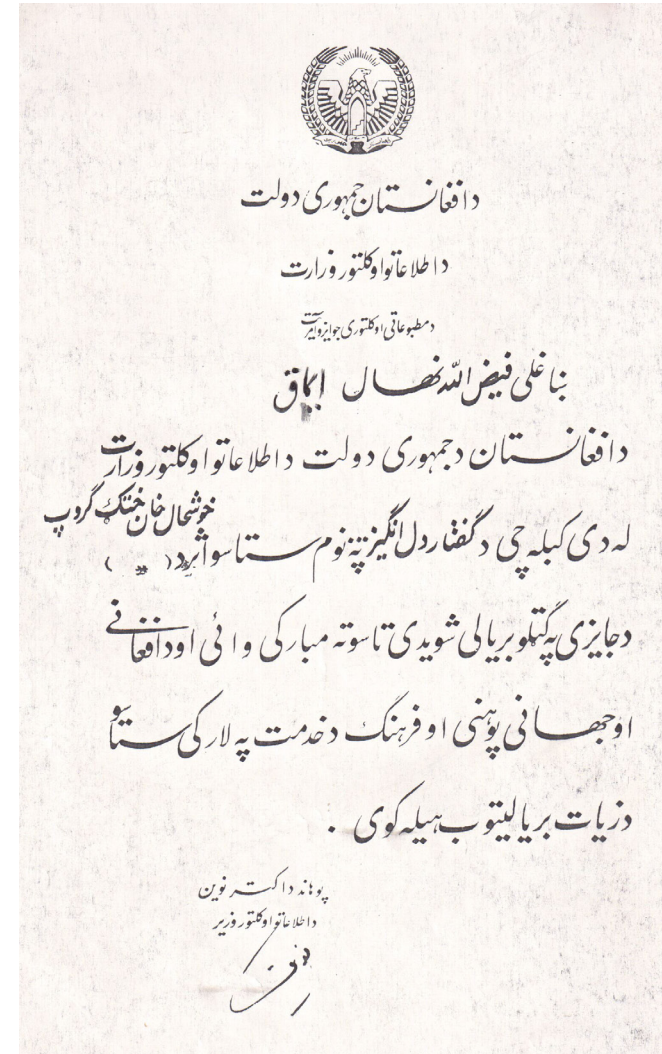 دافغانستان جمهوری دولت
داطلاعاتو او کلتور وزارت
دمطبوعاتی او کلتوری جوایزو آمریت
ښاغلی فیض الله نهال ایماق
دافغانستان دجمهوری دولت داطلاعاتو او کلتور وزارت
له دی کبله چی دگفتار دل انگیز په نوم ستاسو اثر د ( ) خوشحال خان خټک گروپ
دجایزی په گټلو بریالی شویدی تاسو ته مبارکی وائی او دافغانی
او جهانی پوهنی او فرهنگ دخدمت په لار کی ستاسو
دزیات بریالیتوب هیله کوی .
پوهاند داکتر نوین
داطلاعاتو او کلتور وزیر